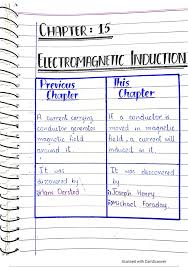 CHAPTER: 15
ELECTROMAGNETIC INDUCTION
Previous Chapter
This Chapter
A current carrying conductor generates magnetic field around it.
If a conductor is moved in magnetic field, a current will induced in it.
It was discovered by Hans Oersted
It was discovered by
Joseph Henry
Michael Faraday.
Scanned with CamScanner